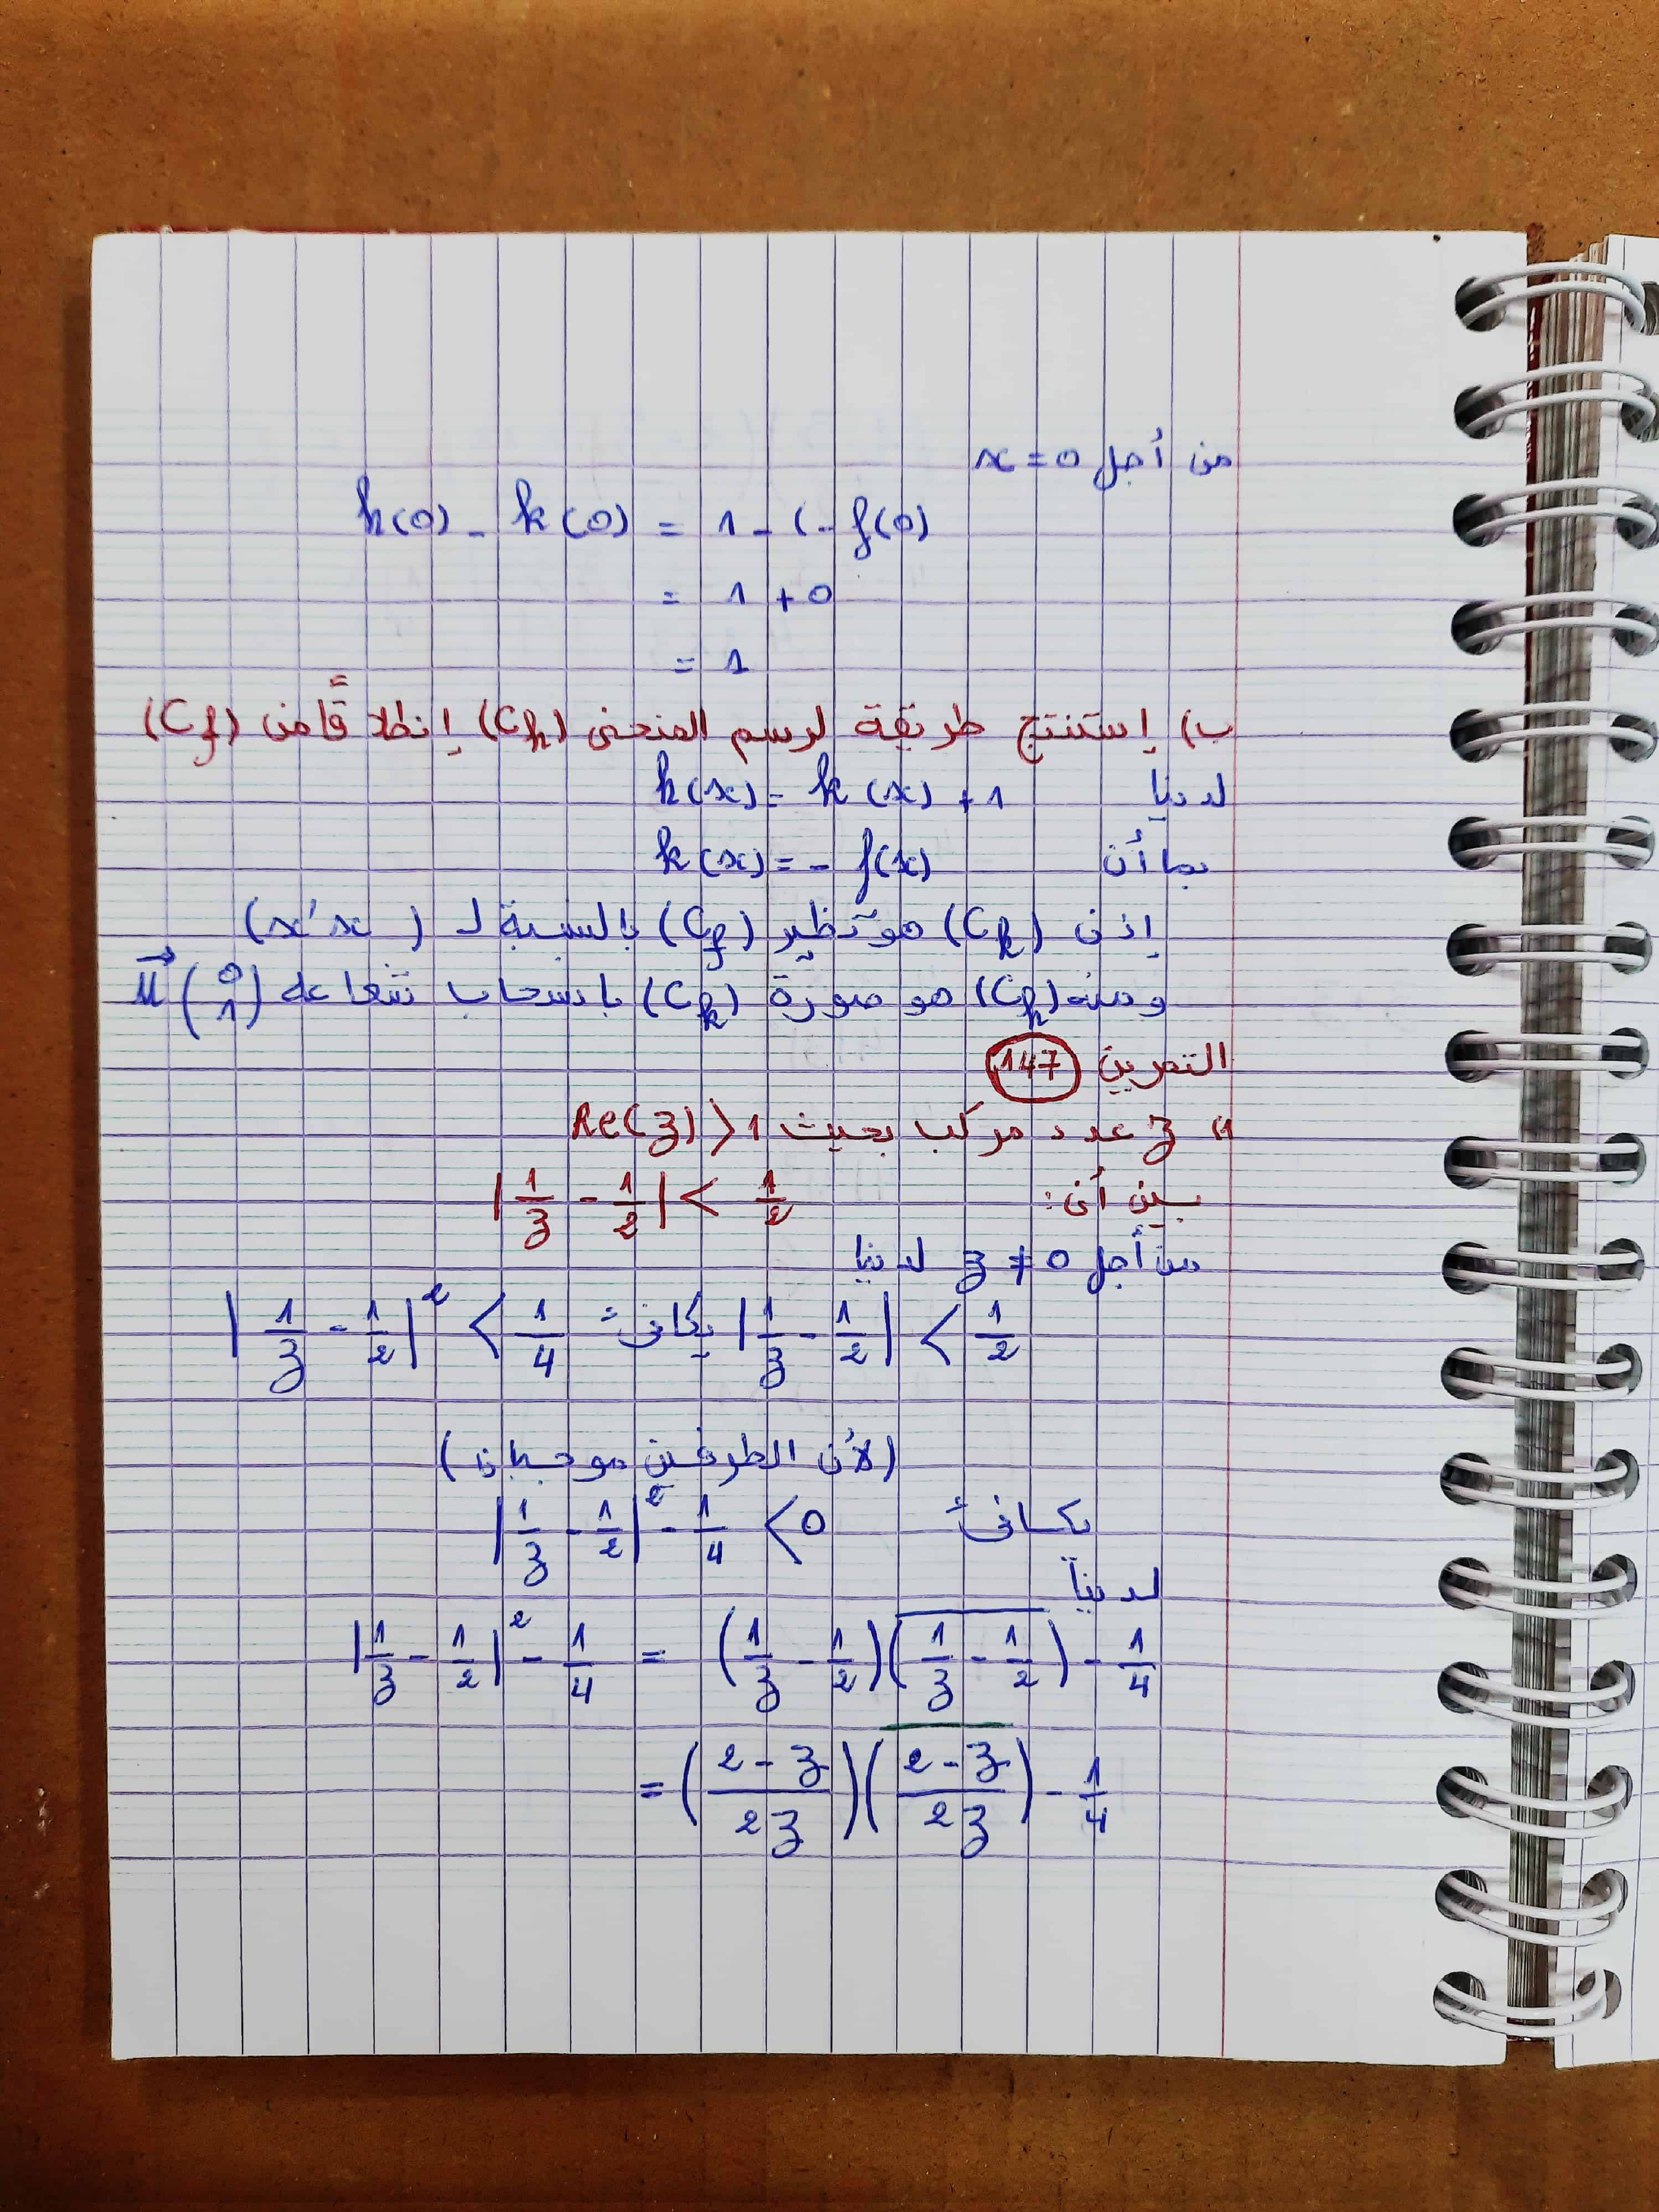 من أجل x = 0
h(0) - k(0) = 1 - (- f(0)
= 1 + 0
= 1
ب) إستنتج طريقة لرسم المنحنى (Ch) إنطلاقًا من (Cf)
لدينا h(x) = k(x) + 1
بما أن k(x) = - f(x)
إذن (Ck) هو نظير (Cf) بالنسبة لـ (x'x)
ومنه (Ch) هو صورة (Ck) بانسحاب شعاعه u⃗ (0 1)
التمرين 147
1) z عدد مركب بحيث Re(z) > 1
بين أن: |1/z - 1/2| < 1/2
من أجل z ≠ 0 لدينا
|1/z - 1/2| < 1/2 يكافئ |1/z - 1/2|² < 1/4
(لأن الطرفين موجبان)
يكافئ |1/z - 1/2|² - 1/4 < 0
لدينا
|1/z - 1/2|² - 1/4 = (1/z - 1/2)(\overline{1/z - 1/2}) - 1/4
= ((2 - z)/2z)(\overline{(2 - z)/2z}) - 1/4